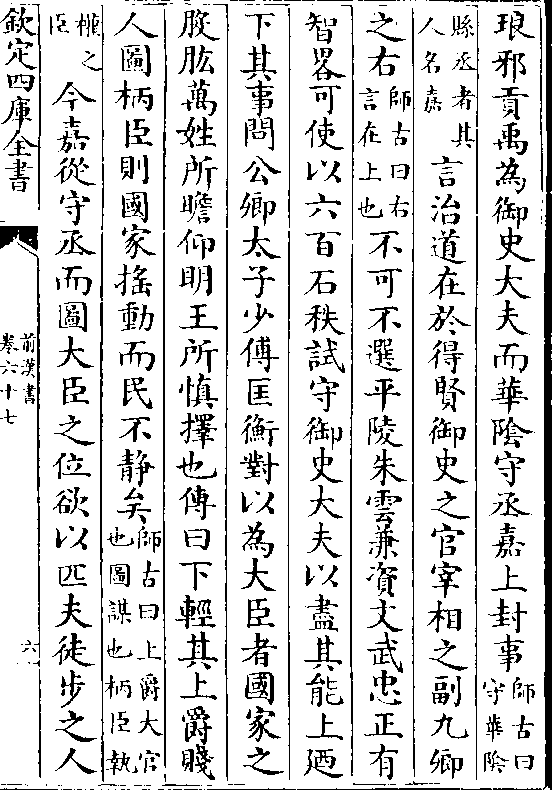 琅邪貢禹為御史大夫而華隂守丞嘉上封事師古曰守華隂
縣丞者其人名嘉言治道在於得賢御史之官宰相之副九卿
之右師古曰右言在上也不可不選平陵朱雲兼資文武忠正有
智畧可使以六百石秩試守御史大夫以盡其能上廼
下其事問公卿太子少傅匡衡對以為大臣者國家之
股肱萬姓所瞻仰明王所慎擇也傳曰下輕其上爵賤
人圖柄臣則國家揺動而民不静矣師古曰上爵大官也圖謀也柄臣執
權之臣今嘉從守丞而圖大臣之位欲以匹夫徒步之人
欽定四庫全書
前漢書
卷六十七
六